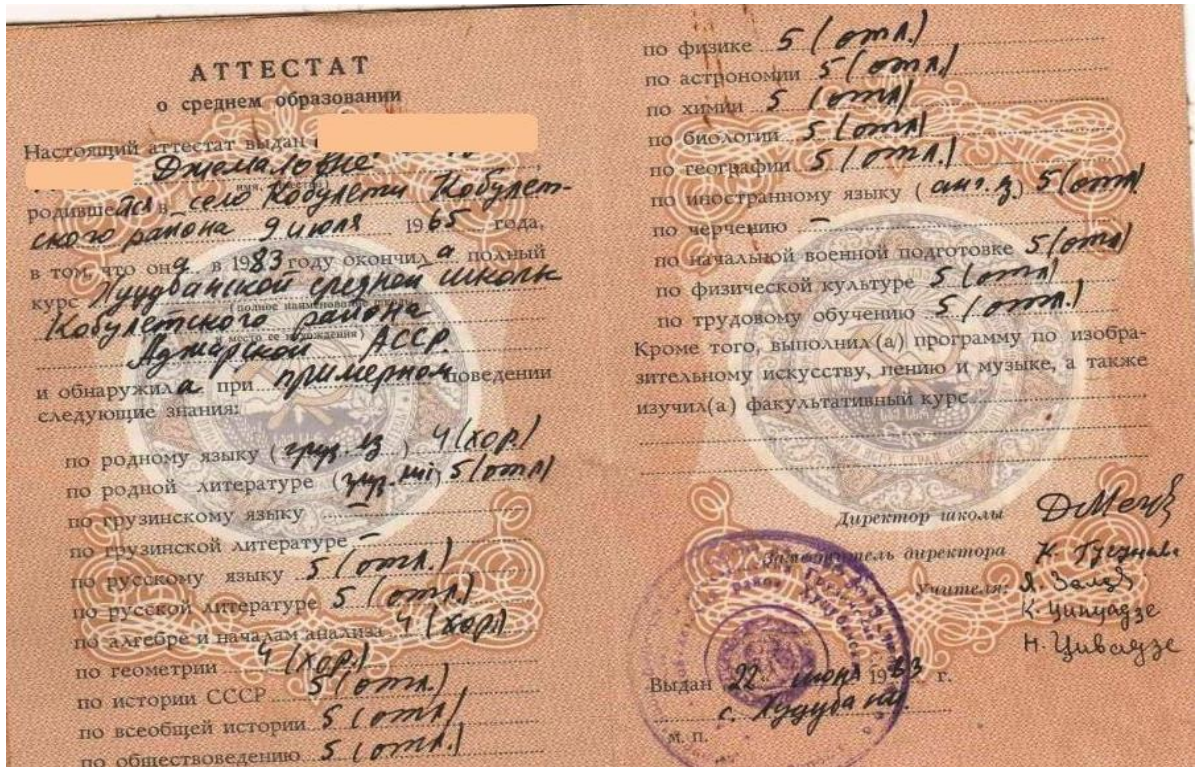 АТТЕСТАТ
о среднем образовании
Настоящий аттестат выдан
Джемаловне
родившейся в село Кобулети Кобулет-
ского района 9 июля 1965 года,
в том, что она в 1983 году окончила полный
курс Хуцубанской средней школы
(полное наименование
Кобулетского района
и место ее нахождения)
Аджарской АССР.
и обнаружила при примерном поведении
следующие знания:
по родному языку (груз. яз) 4 (хор.)
по родной литературе (груз. 5 (отл)
по грузинскому языку –
по грузинской литературе –
по русскому языку 5 (отл.)
по русской литературе 5 (отл.)
по алгебре и началам анализа 4 (хор)
по геометрии 4 (хор.)
по истории СССР 5 (отл.)
по всеобщей истории 5 (отл)
по обществоведению 5 (отл.)
по физике 5 (отл.)
по астрономии 5 (отл.)
по химии 5 (отл)
по биологии 5 (отл)
по географии 5 (отл.)
по иностранному языку (анг. я) 5 (отл)
по черчению –
по начальной военной подготовке 5 (отл)
по физической культуре 5 (отл)
по трудовому обучению 5 (отл.)
Кроме того, выполнил(а) программу по изобра-
зительному искусству, пению и музыке, а также
изучил(а) факультативный курс
Директор школы
Заместитель директора К.
Учителя:
К. Цинцадзе
Н. Цивадзе
Выдан 22 июня 1983 г.
с. Хуцубани.
м. п.